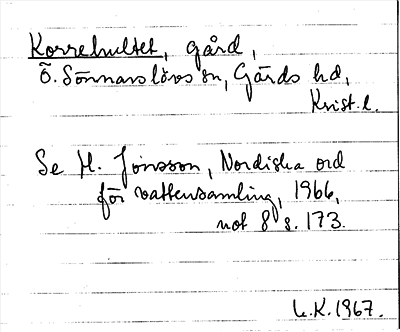 Korrehultet, gård,
Ö. Sönnarslövs sn, Gärds hd,
Krist. l.
Se H. Jonsson, Nordiska ord
för vattensamling, 1966,
not 8 s. 173.
L.K. 1967.